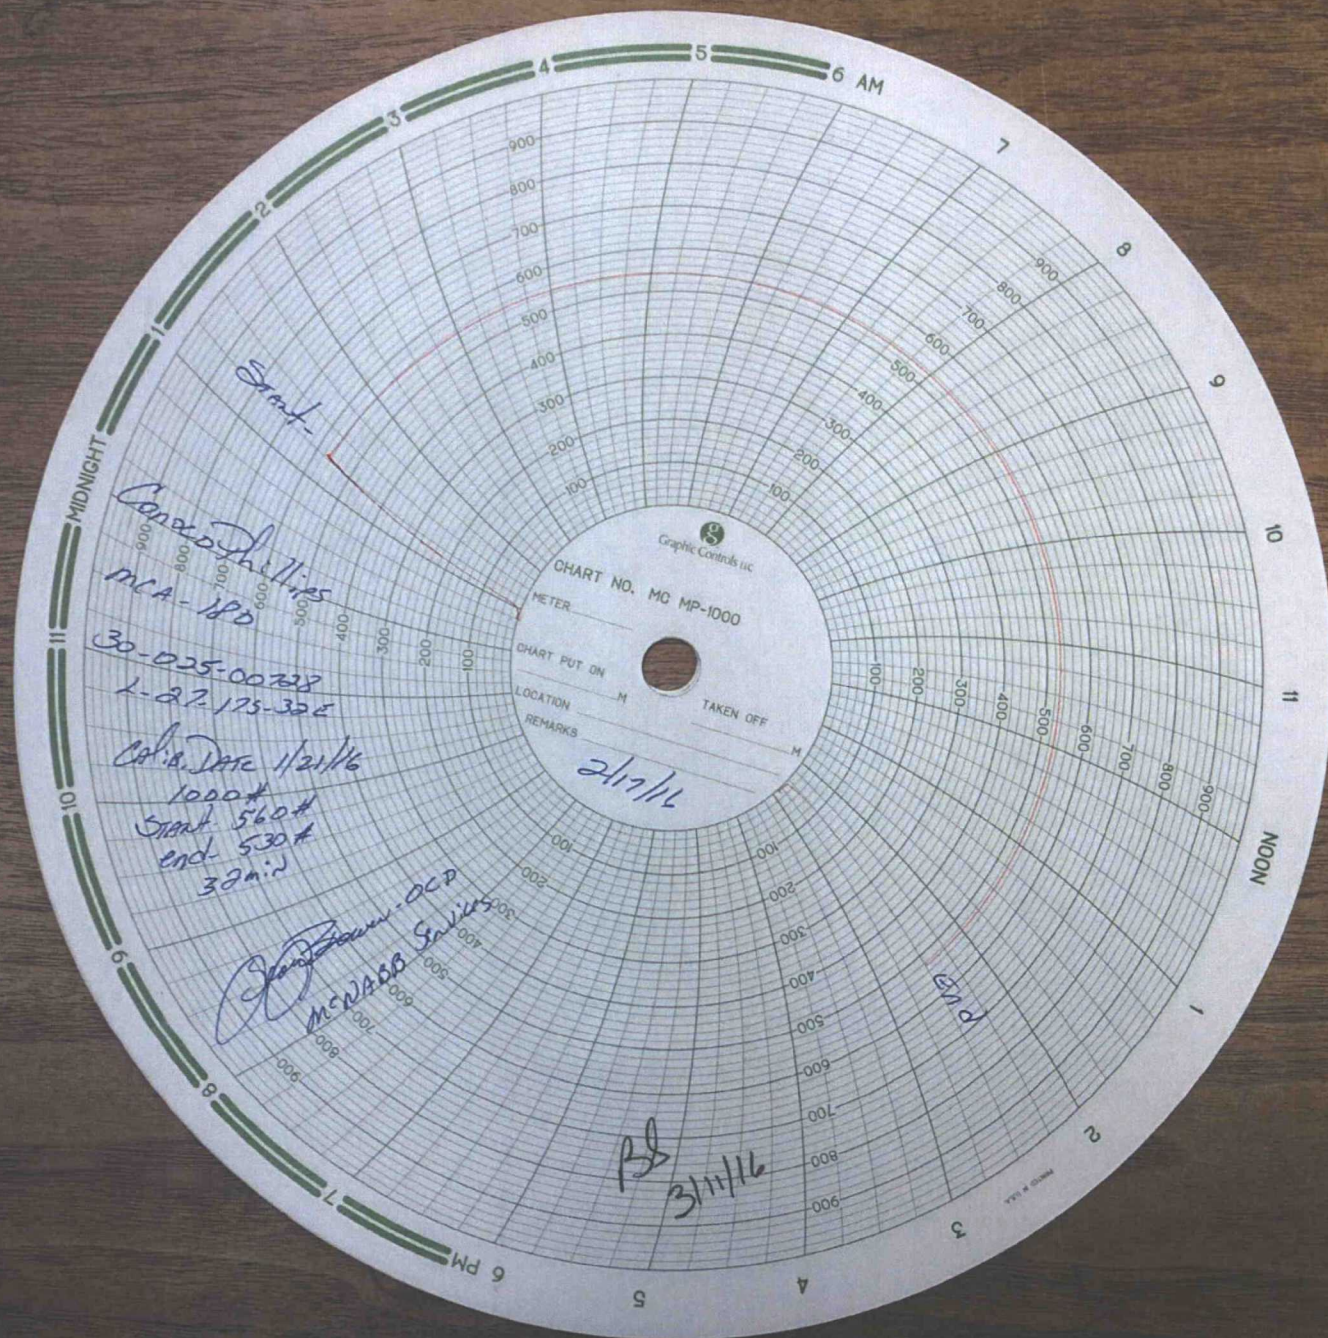 MIDNIGHT
1
2
3
4
5
6 AM
7
8
9
10
11
NOON
1
2
3
4
5
6 PM
7
8
9
10
11
900
800
700
600
500
400
300
200
100
900
800
700
600
500
400
300
200
100
100
200
300
400
500
600
700
800
900
100
200
300
400
500
600
700
800
900
100
200
300
400
500
600
700
800
900
900
800
700
600
500
400
300
200
100
g
Graphic Controls LLC
CHART NO. MC MP-1000
METER
CHART PUT ON
M
TAKEN OFF
M
LOCATION
REMARKS
2/17/16
Start-
ConocoPhillips
MCA-180
30-025-00728
L-27-17S-32E
CALIB. DATE 1/21/16
1000#
START 560#
end- 530#
32 min
Brown-OCD
McNABB Services
End
BS
3/11/16
PRINTED IN U.S.A.